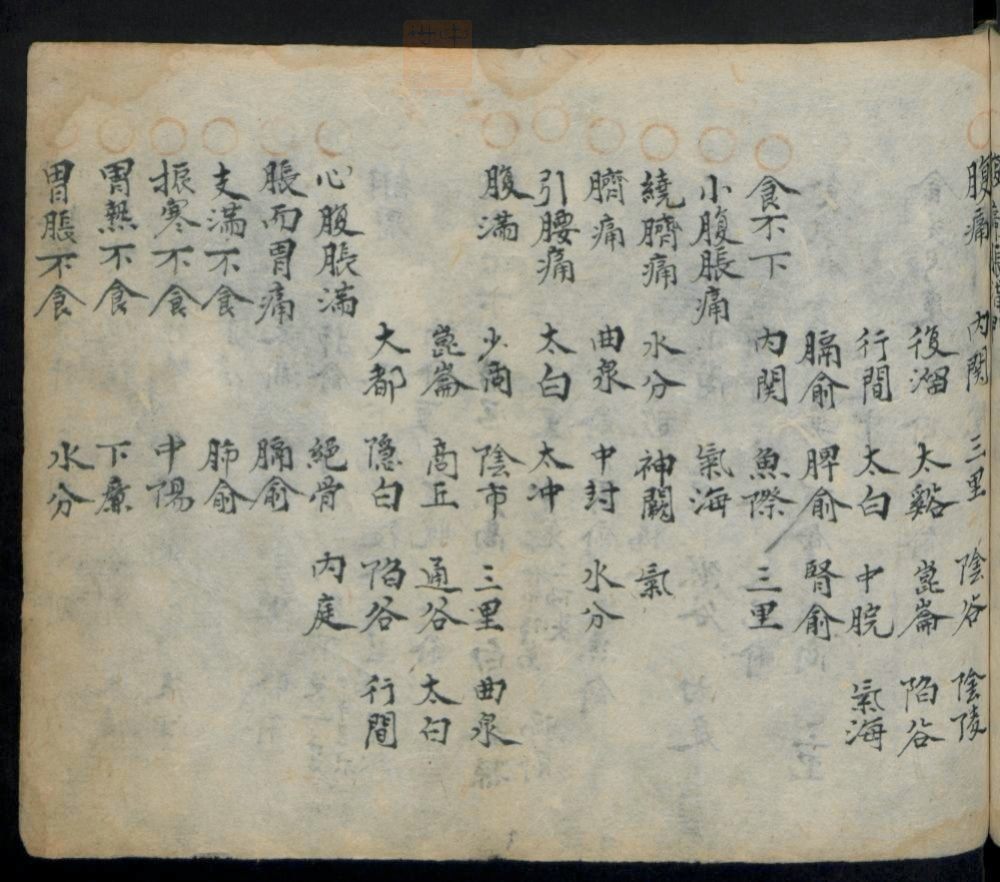 腹痛 内関 三里 陰谷 陰陵
復溜 太谿 崑崙 陷谷
行間 太白 中脘 氣海
膈俞 脾俞 腎俞
食不下 内関 魚際 三里
小腹脹痛 氣海
繞臍痛 水分 神闕 氣
臍痛 曲泉 中封 水分
引腰痛 太白 太冲
腹満 少商 陰市 三里 曲泉
崑崙 商丘 通谷 太白
大都 隐白 陷谷 行間
心腹脹満 絕骨 内庭
脹而胃痛 膈俞
支満不食 肺俞
振寒不食 中陽
胃熱不食 下廉
胃脹不食 水分